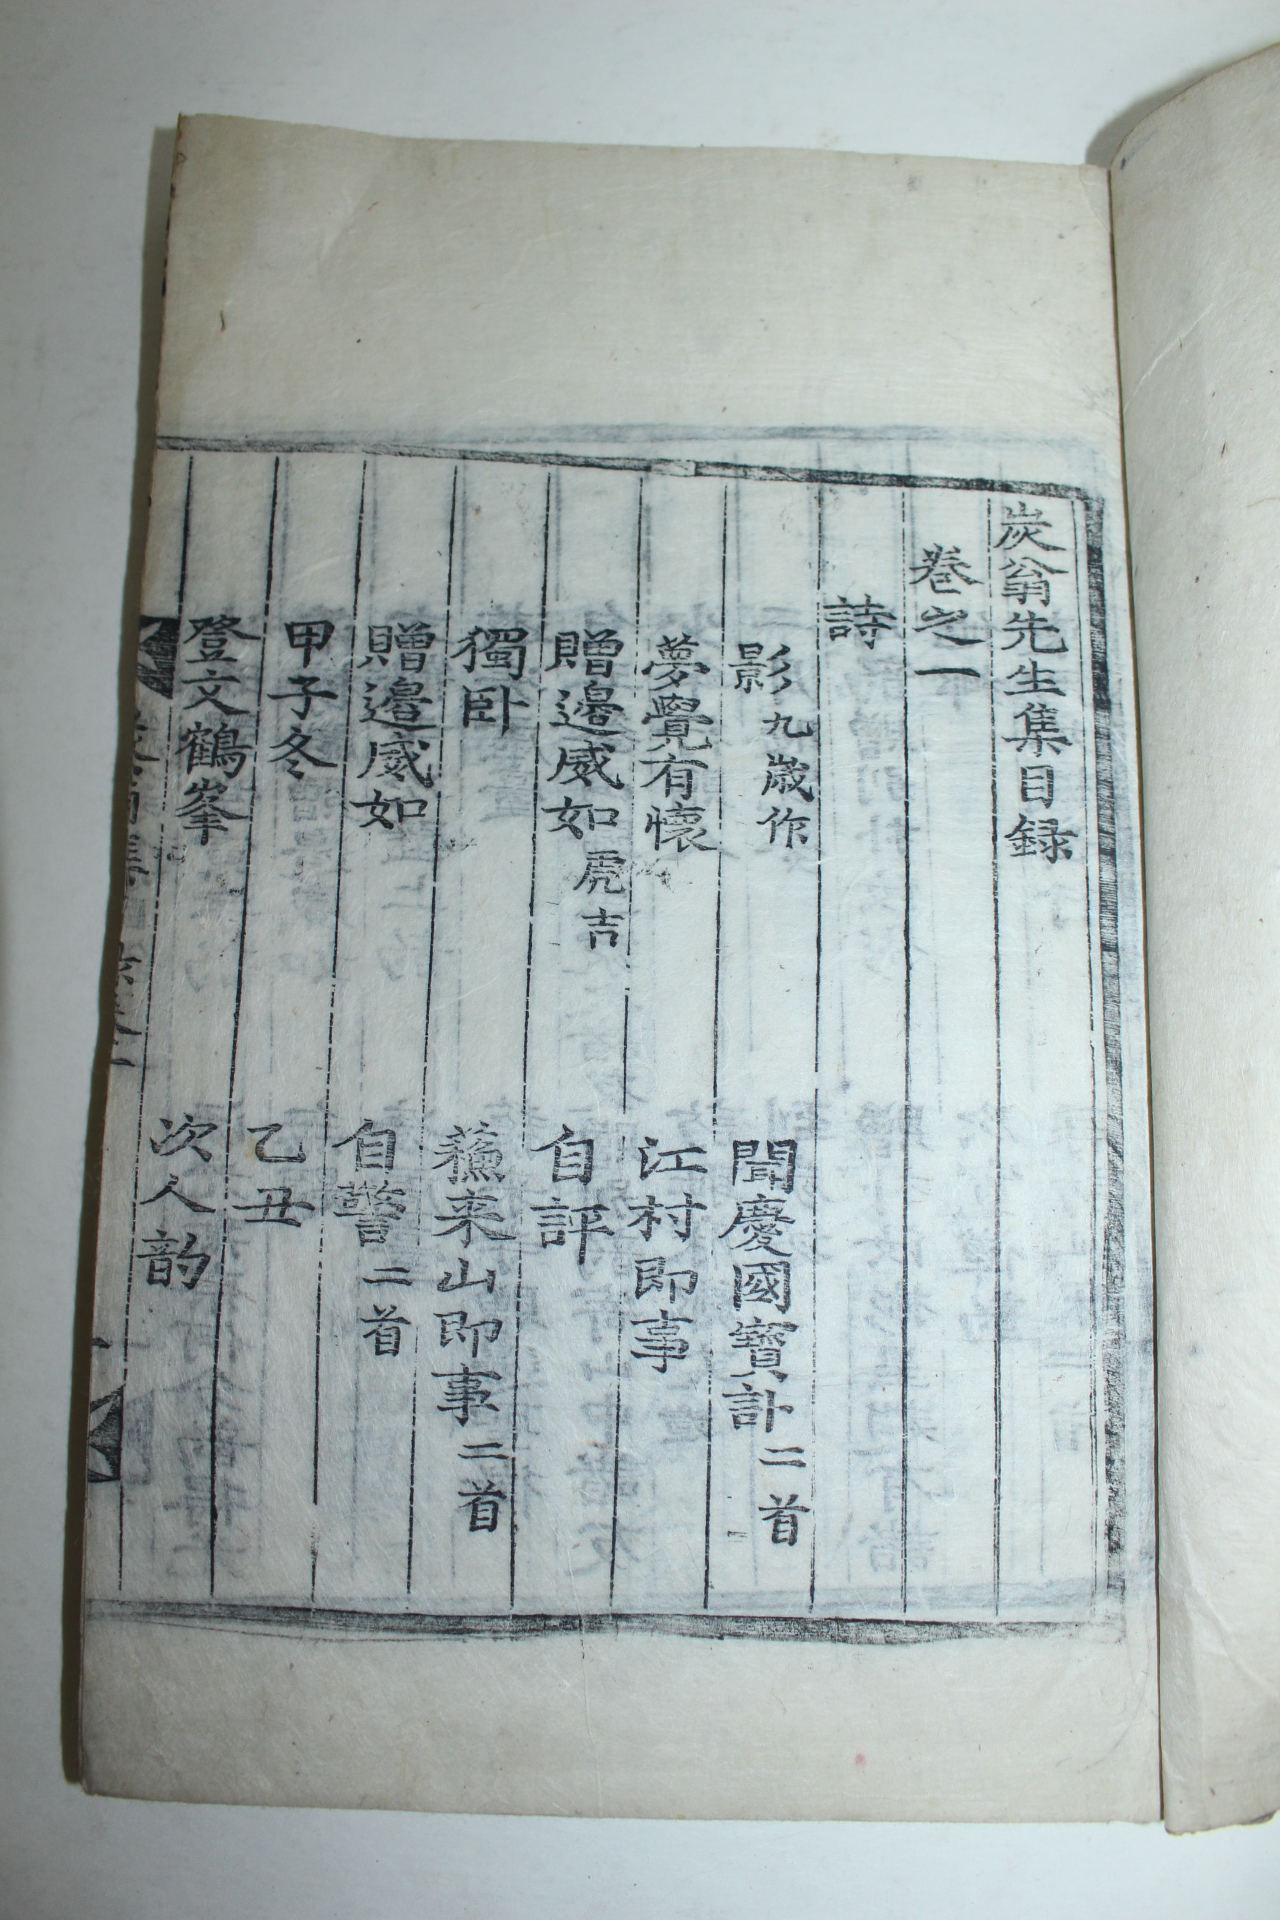 炭翁先生集目録
卷之一
詩
影 九歲作
聞慶國寶訃 二首
夢覺有懷
江村即事
贈邉威如 虎吉
自評
獨卧
蘓来山即事 二首
贈邉威如
自警 二首
甲子冬
乙丑
登文鶴峯
次人韵